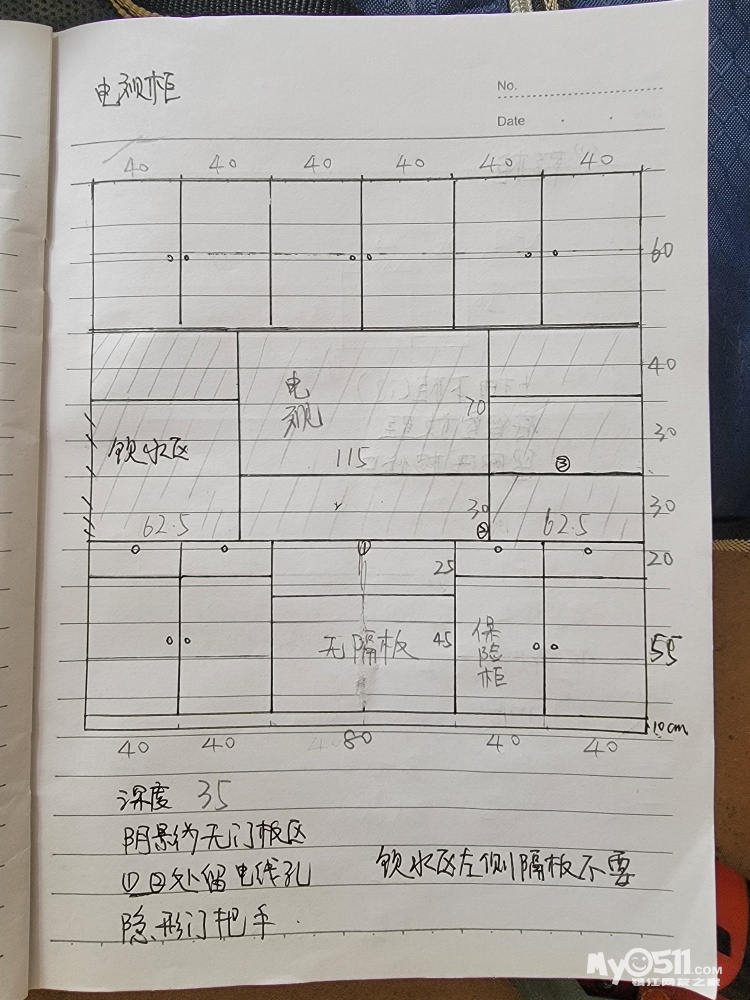 电视柜
No.
Date
40 40 40 40 40 40
60
电视
40
70
115
饮水区
30
③
62.5
30
②
62.5
30
①
20
25
无隔板
45
保险柜
55
10cm
40 40 80 40 40
深度 35
阴影为无门板区
①②处留电线孔
饮水区左侧隔板不要
隐形门把手
My0511.COM
镇江网友之家